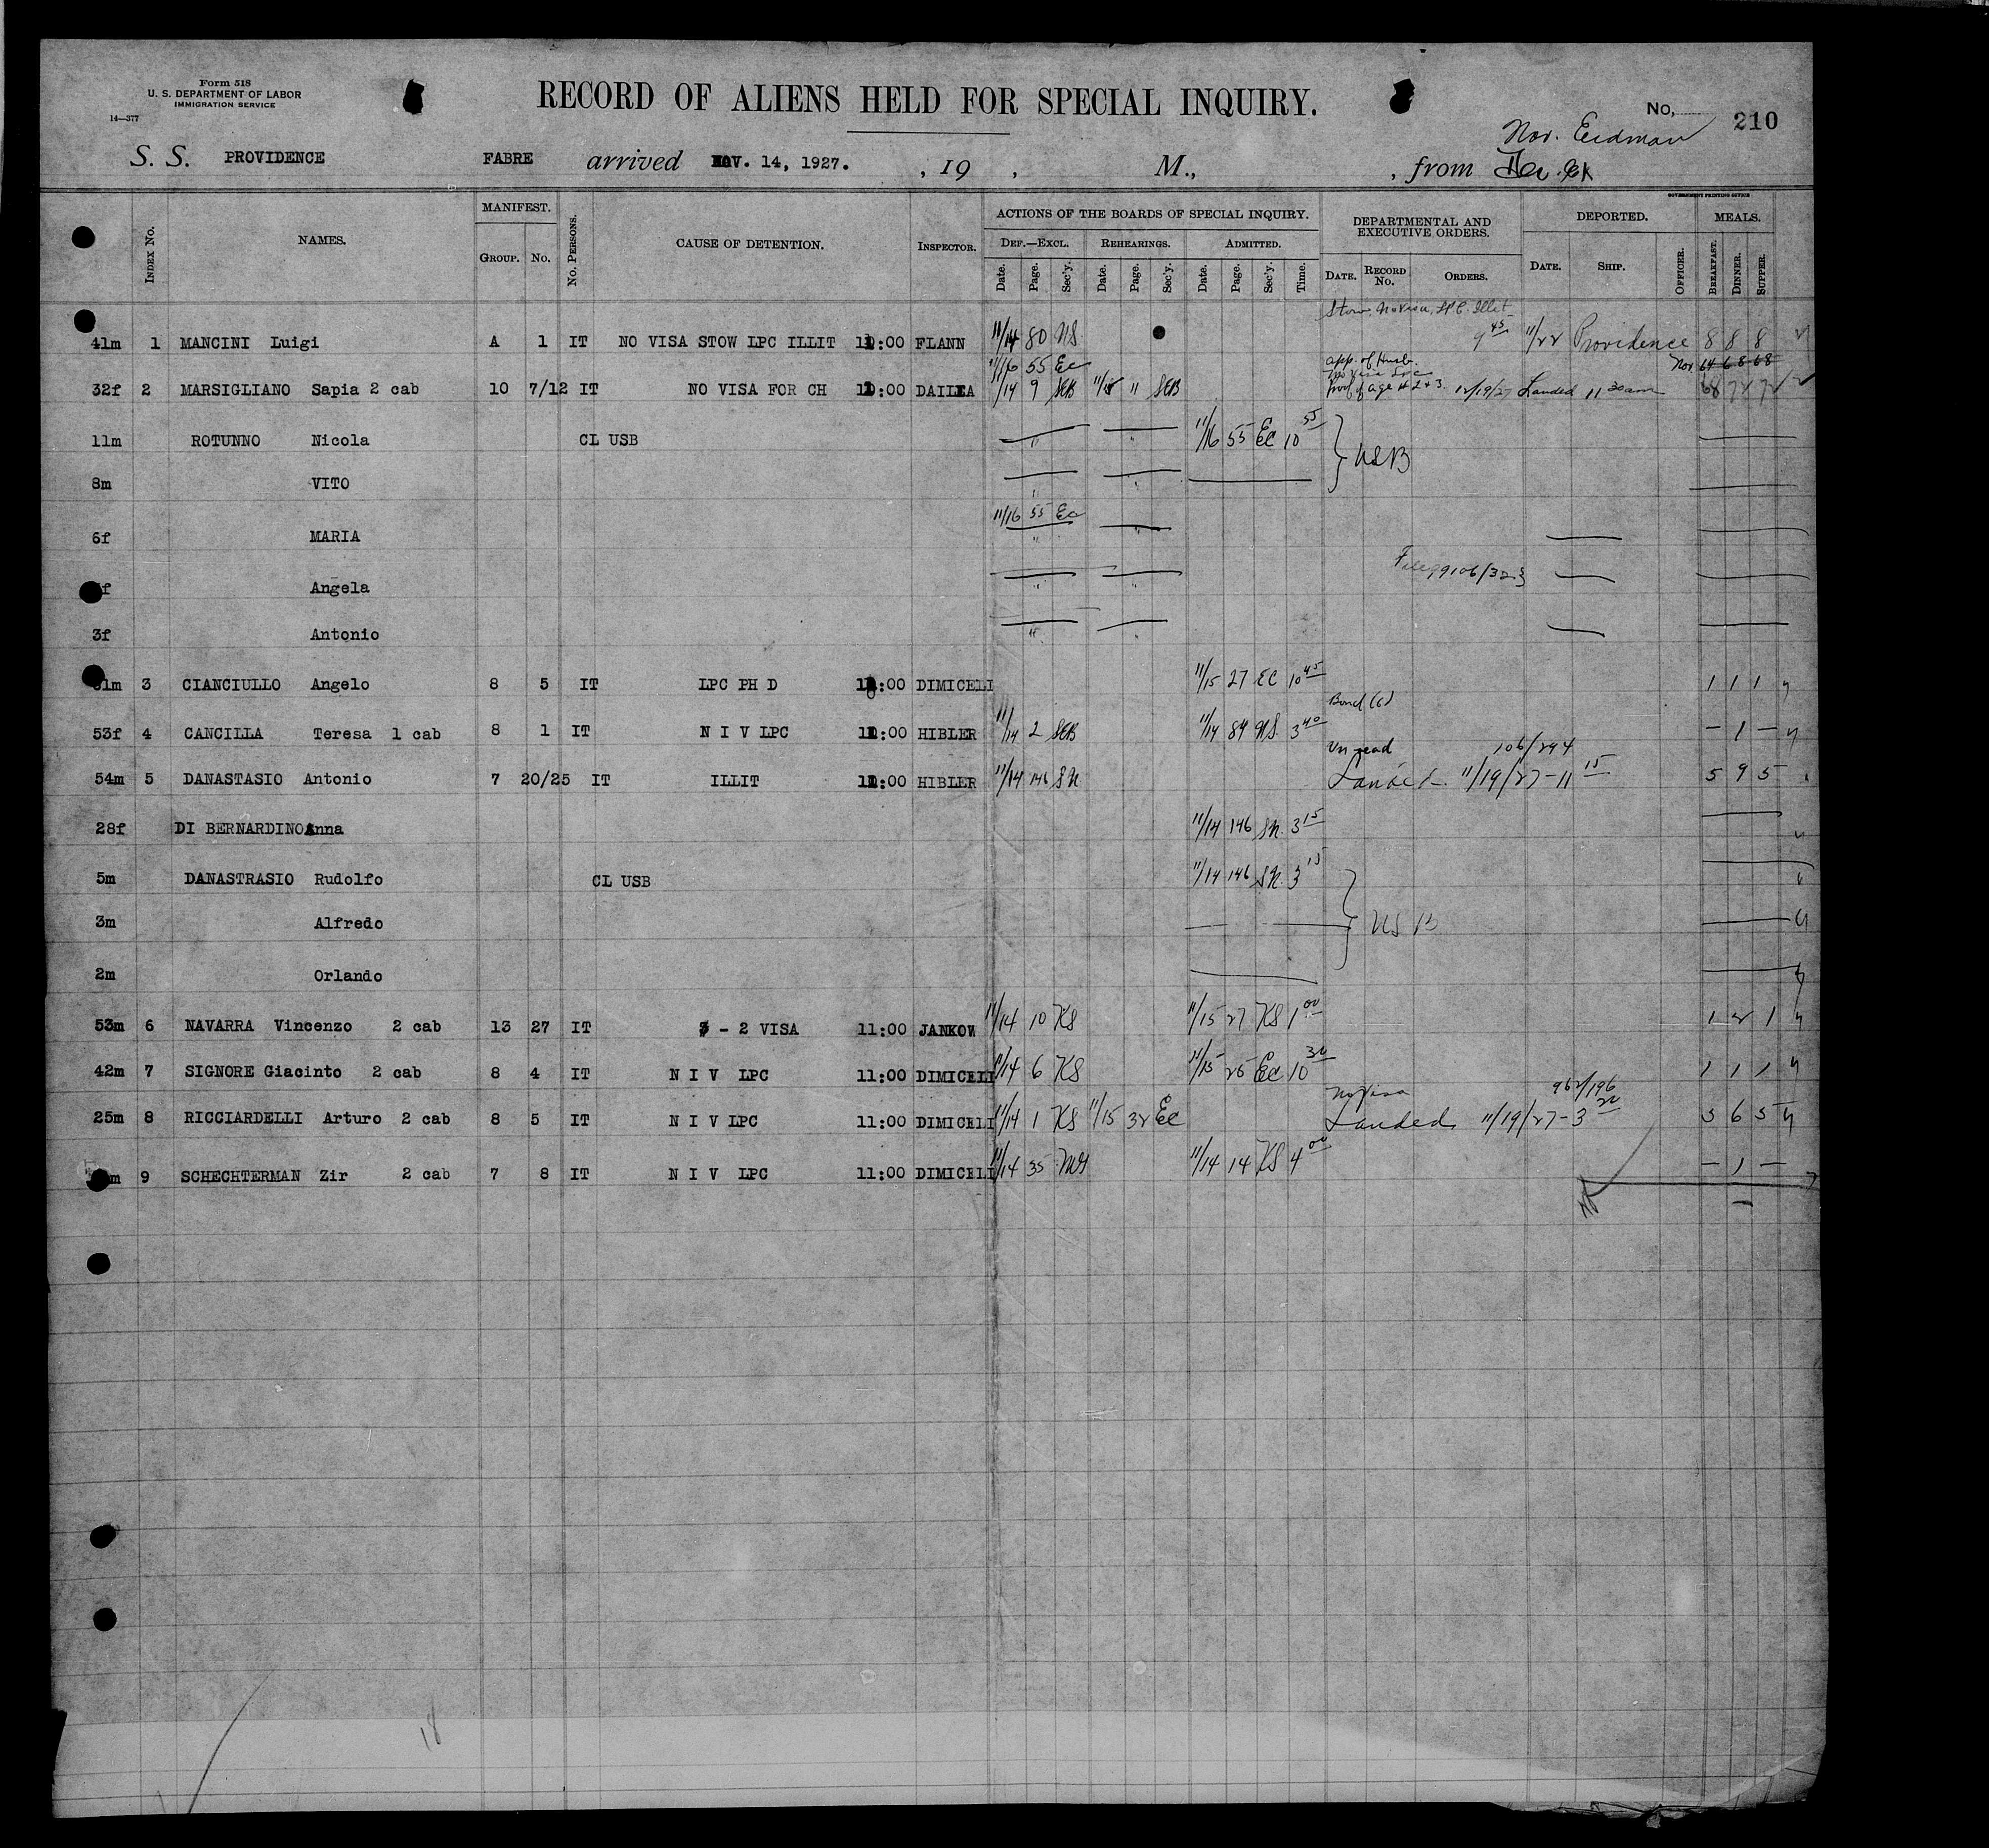 Form 518
U. S. DEPARTMENT OF LABOR
IMMIGRATION SERVICE
14—377
RECORD OF ALIENS HELD FOR SPECIAL INQUIRY.
No. 210
Nov. Eidman
S. S. PROVIDENCE FABRE arrived NOV. 14, 1927. , 19 , M., , from
GOVERNMENT PRINTING OFFICE
Index No. NAMES. MANIFEST. Group. No. No. Persons. CAUSE OF DETENTION. Inspector. ACTIONS OF THE BOARDS OF SPECIAL INQUIRY. Def.—Excl. Rehearings. Admitted. DEPARTMENTAL AND EXECUTIVE ORDERS. DEPORTED. MEALS.
Date. Page. Sec'y. Date. Page. Sec'y. Date. Page. Sec'y. Time. Date. Record No. Orders. Date. Ship. Officer. Breakfast. Dinner. Supper.
Stow, No Visa, LPC. Illit
41m 1 MANCINI Luigi A 1 IT NO VISA STOW LPC ILLIT 11:00 FLANN 11/14 80 NS 9 45 11/22 Providence 8 8 8
11/16 55 Ec app. of Husb. Nov 64 68 68
32f 2 MARSIGLIANO Sapia 2 cab 10 7/12 IT NO VISA FOR CH 11:00 DAILEA 11/14 9 SEB 11/18 " SEB Proof of age # 2 + 3 12/19/27 Landed 11 30 am
11m ROTUNNO Nicola CL USB " " 11/16 55 Ec 10 55
USB
8m VITO " "
11/16 55 Ec
6f MARIA " "
File 99106/32
f Angela " "
3f Antonio " "
1m 3 CIANCIULLO Angelo 8 5 IT LPC PH D :00 DIMICELI 11/15 27 EC 10 45 1 1 1
Bond
53f 4 CANCILLA Teresa 1 cab 8 1 IT N I V LPC 11:00 HIBLER 11/14 2 SEB 11/14 84 NS 3 40 - 1 -
Un read 106/294
54m 5 DANASTASIO Antonio 7 20/25 IT ILLIT 11:00 HIBLER 11/14 146 SN Landed 11/19/27-11 15 5 9 5
28f DI BERNARDINO Anna 11/14 146 SN. 3 15
5m DANASTRASIO Rudolfo CL USB 11/14 146 SN. 3 15
3m Alfredo USB
2m Orlando
53m 6 NAVARRA Vincenzo 2 cab 13 27 IT 3 - 2 VISA 11:00 JANKOW 11/14 10 KS 11/15 27 KS 1 00 1 2 1
42m 7 SIGNORE Giacinto 2 cab 8 4 IT N I V LPC 11:00 DIMICELI 11/14 6 KS 11/15 25 Ec 10 30 1 1 1
No Visa 962/196
25m 8 RICCIARDELLI Arturo 2 cab 8 5 IT N I V LPC 11:00 DIMICELI 11/14 1 KS 11/15 32 Ec Landed 11/19/27-3 20 5 6 5
m 9 SCHECHTERMAN Zir 2 cab 7 8 IT N I V LPC 11:00 DIMICELI 11/14 35 11/14 14 KS 4 00 - 1 -
18